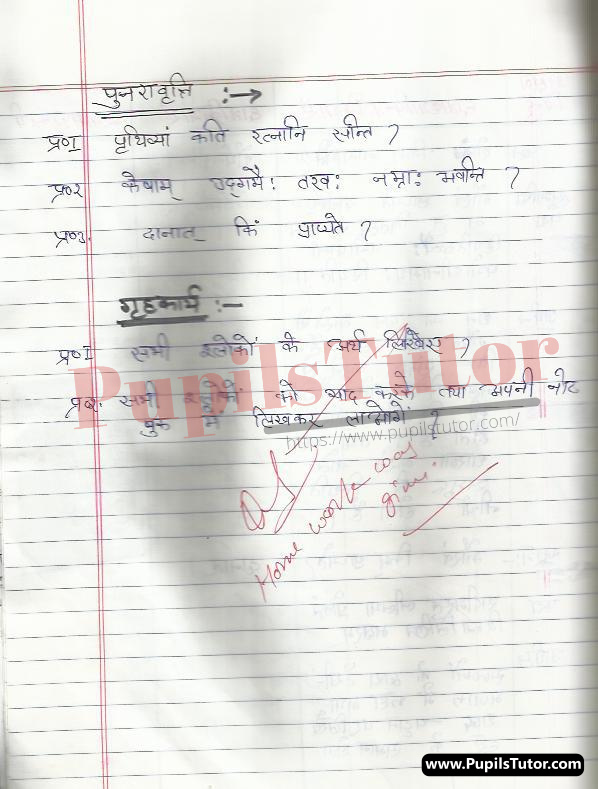 पुनरावृत्ति :→
प्र०1 पृथिव्यां कति रत्नानि सन्ति ?
प्र०2 केषाम् उद्गमैः तरवः नम्राः भवन्ति ?
प्र०3. दानात् किं प्राप्यते ?
गृहकार्य :-
प्र०1 सभी श्लोकों के अर्थ लिखिए ?
प्र०2. सभी श्लोकों को याद करके तथा अपनी नोट
बुक में लिखकर लाओगे ?
PupilsTutor
https://www.pupilstutor.com/
Home work was
give.
www.PupilsTutor.com